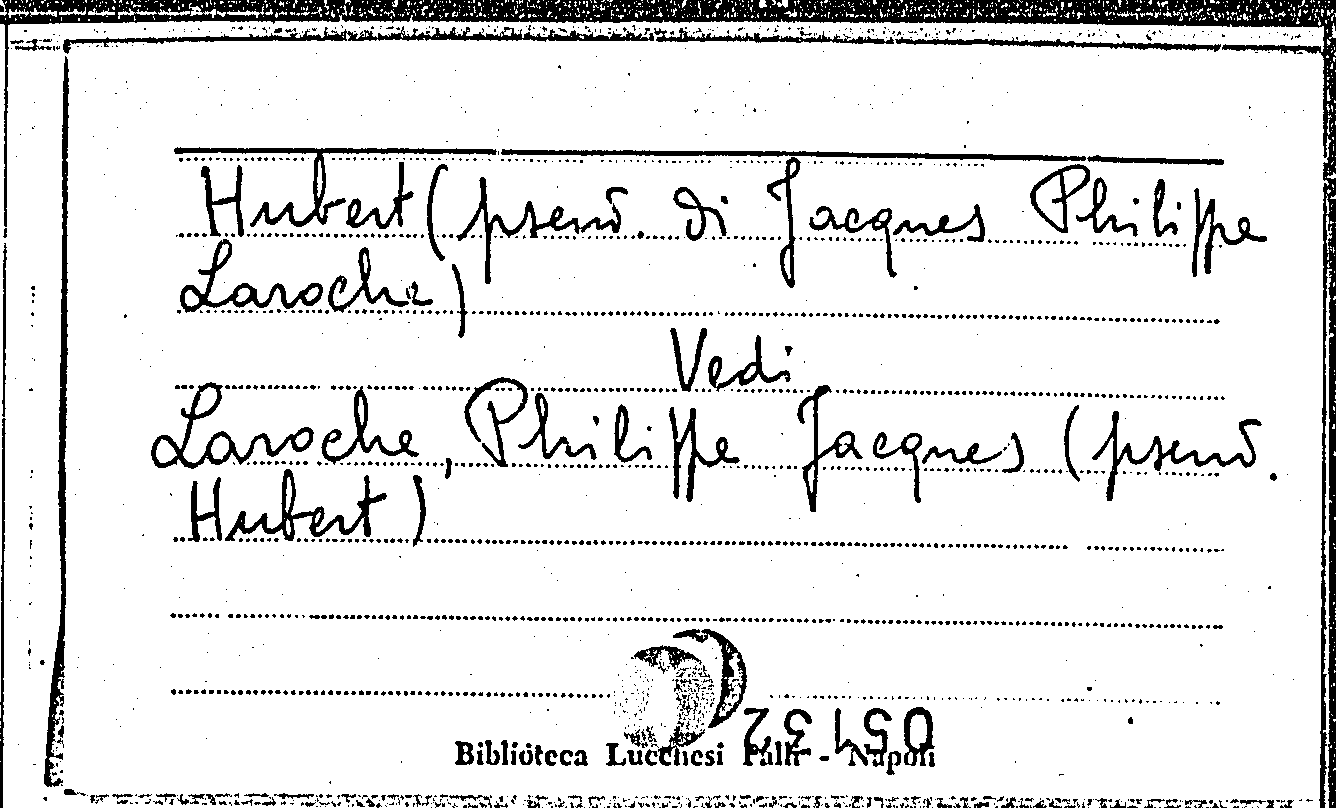 Hubert (pseud. di Jacques Philippe
Laroche)
Vedi
Laroche, Philippe Jacques (pseud.
Hubert)
Biblioteca Lucchesi Palli - Napoli